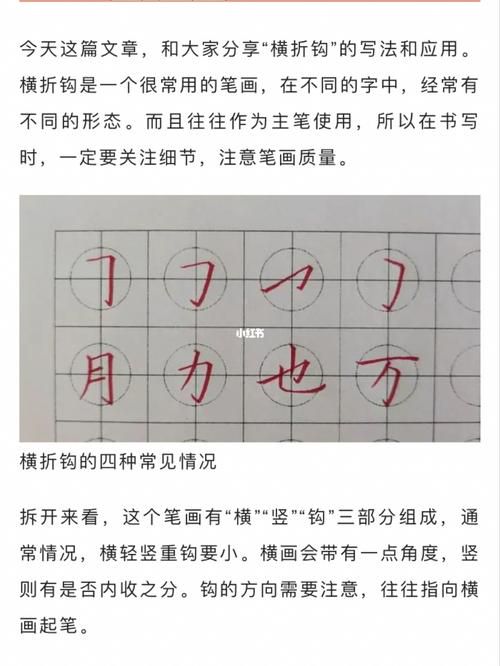 今天这篇文章，和大家分享“横折钩”的写法和应用。
横折钩是一个很常用的笔画，在不同的字中，经常有
不同的形态。而且往往作为主笔使用，所以在书写
时，一定要关注细节，注意笔画质量。
小红书
月 力 也 万
横折钩的四种常见情况
拆开来看，这个笔画有“横”“竖”“钩”三部分组成，通
常情况，横轻竖重钩要小。横画会带有一点角度，竖
则有是否内收之分。钩的方向需要注意，往往指向横
画起笔。